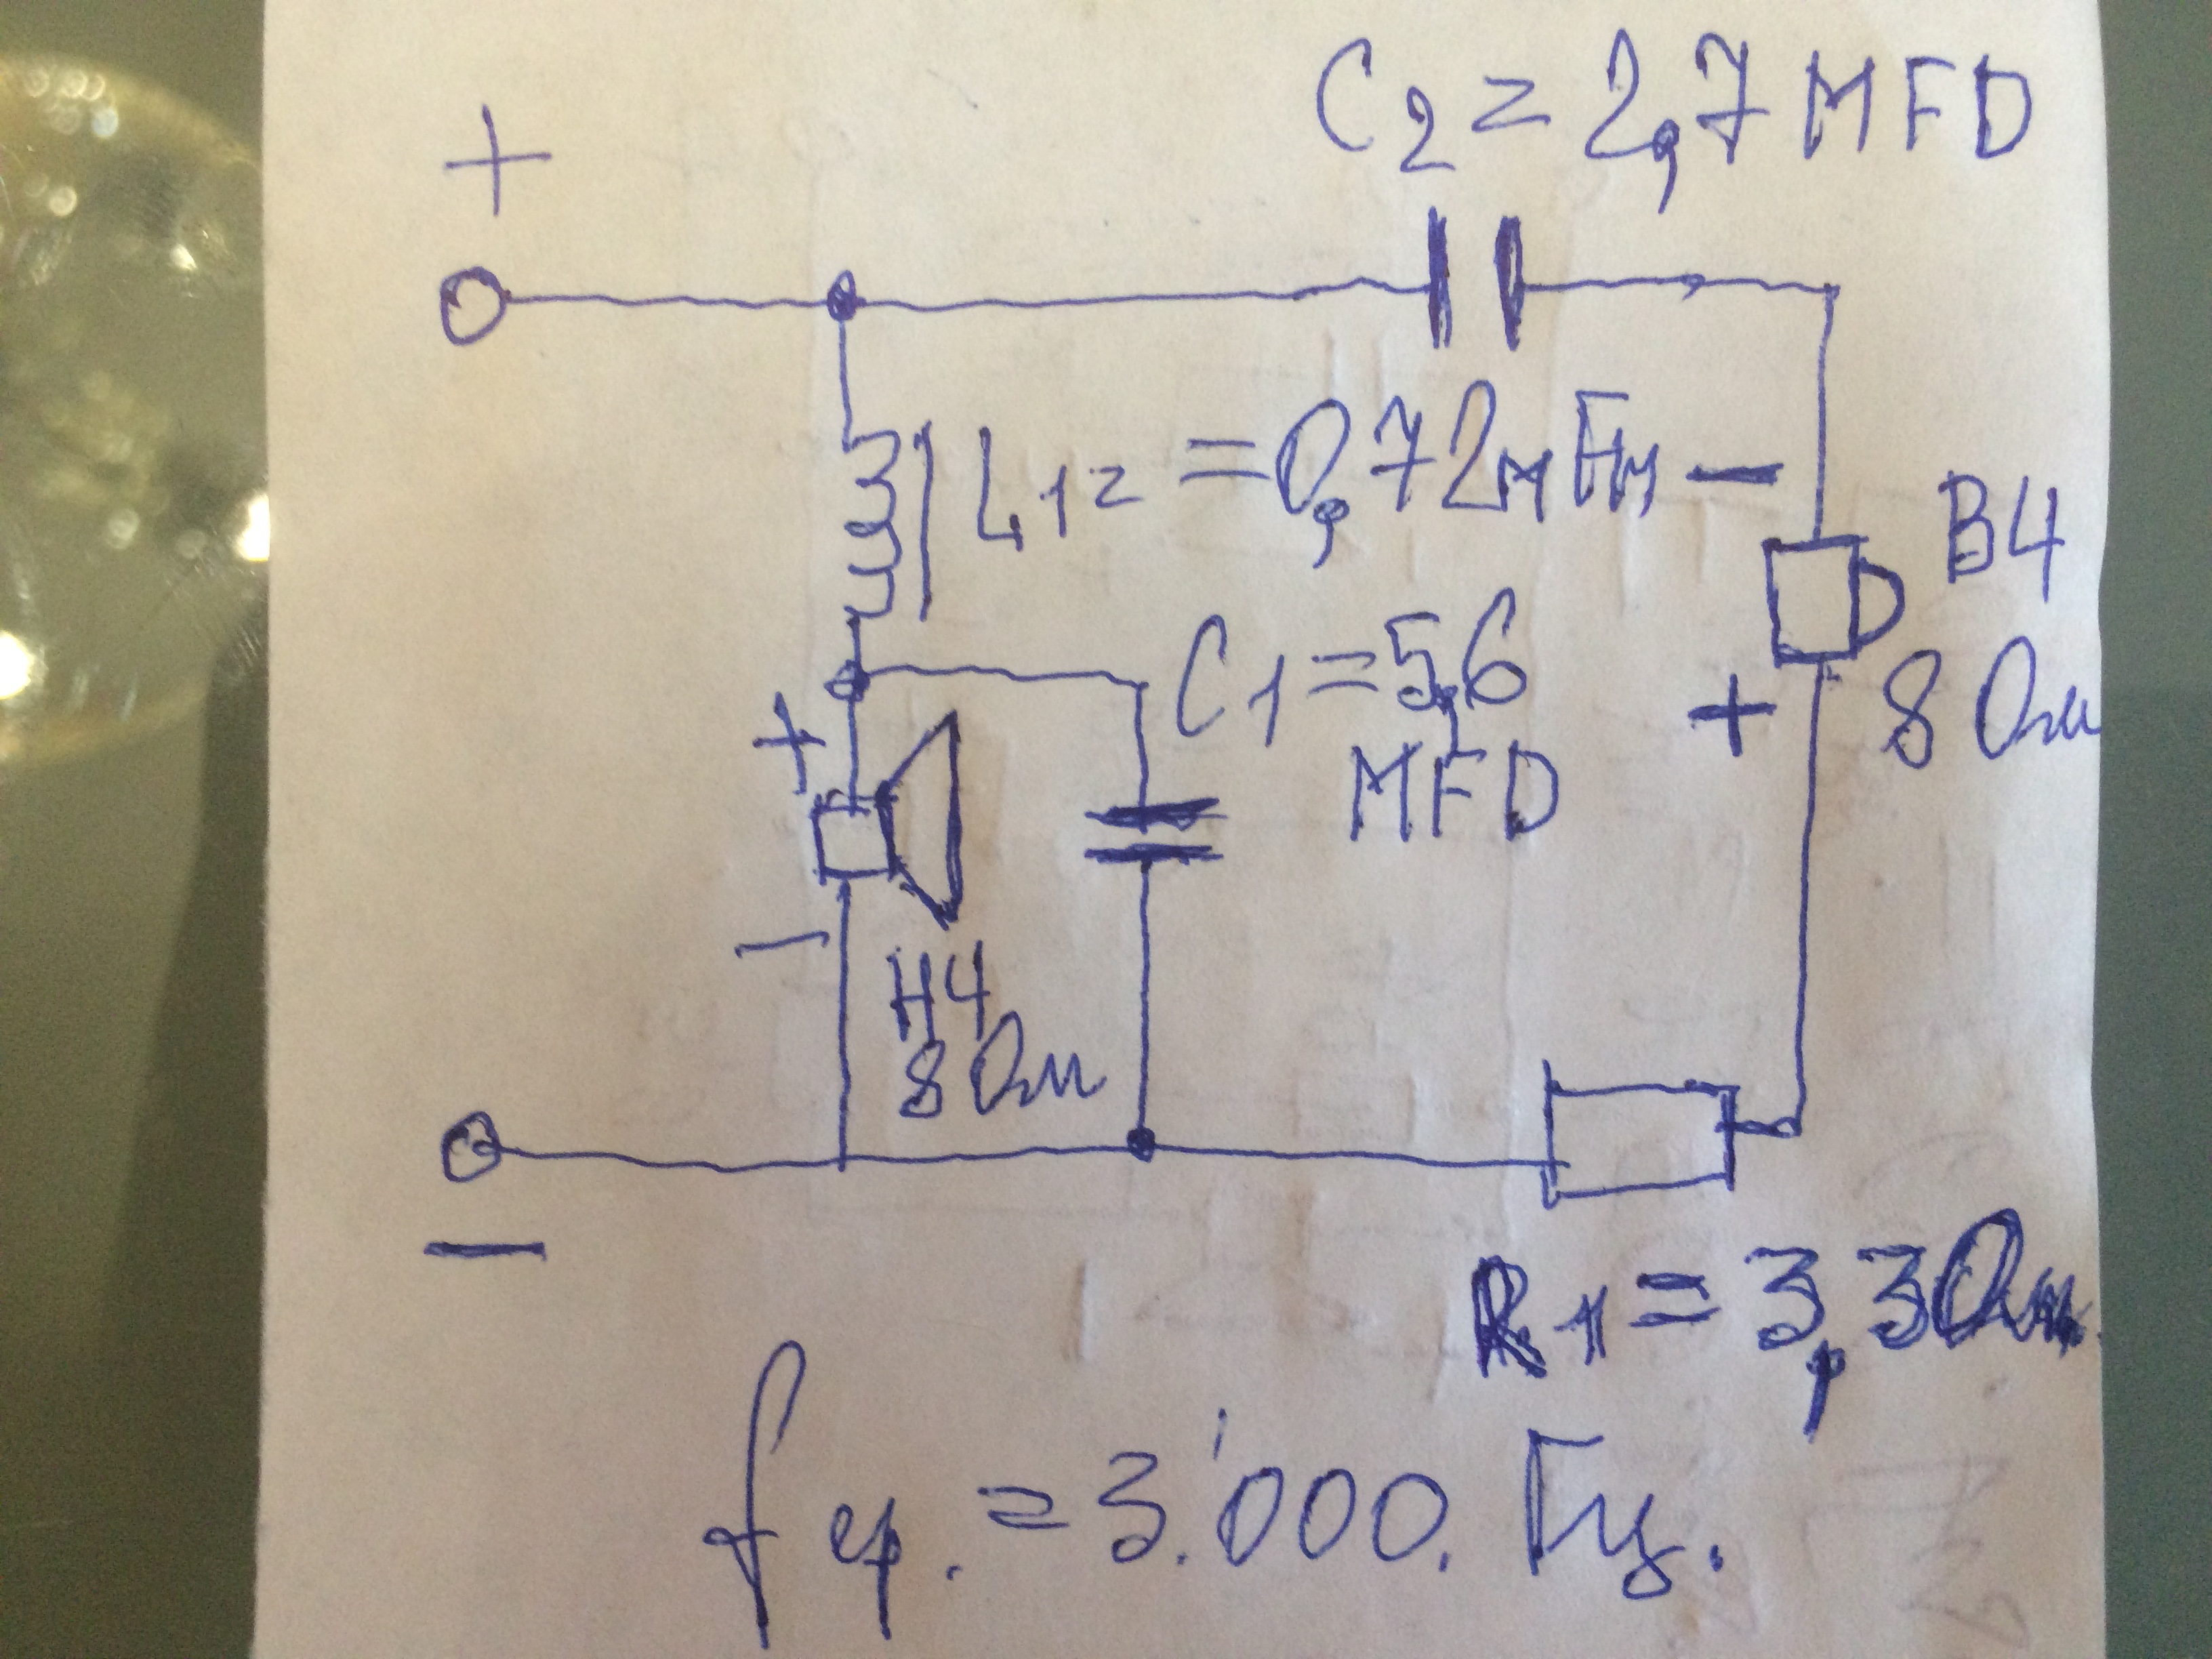 C2 = 2,7 MFD
+
L1= =0,72мГн
−
В4
8 Ом
+
C1=5,6
MFD
+
−
НЧ
8 Ом
−
R1=3,3Ом
fср.=3.'000. Гц.